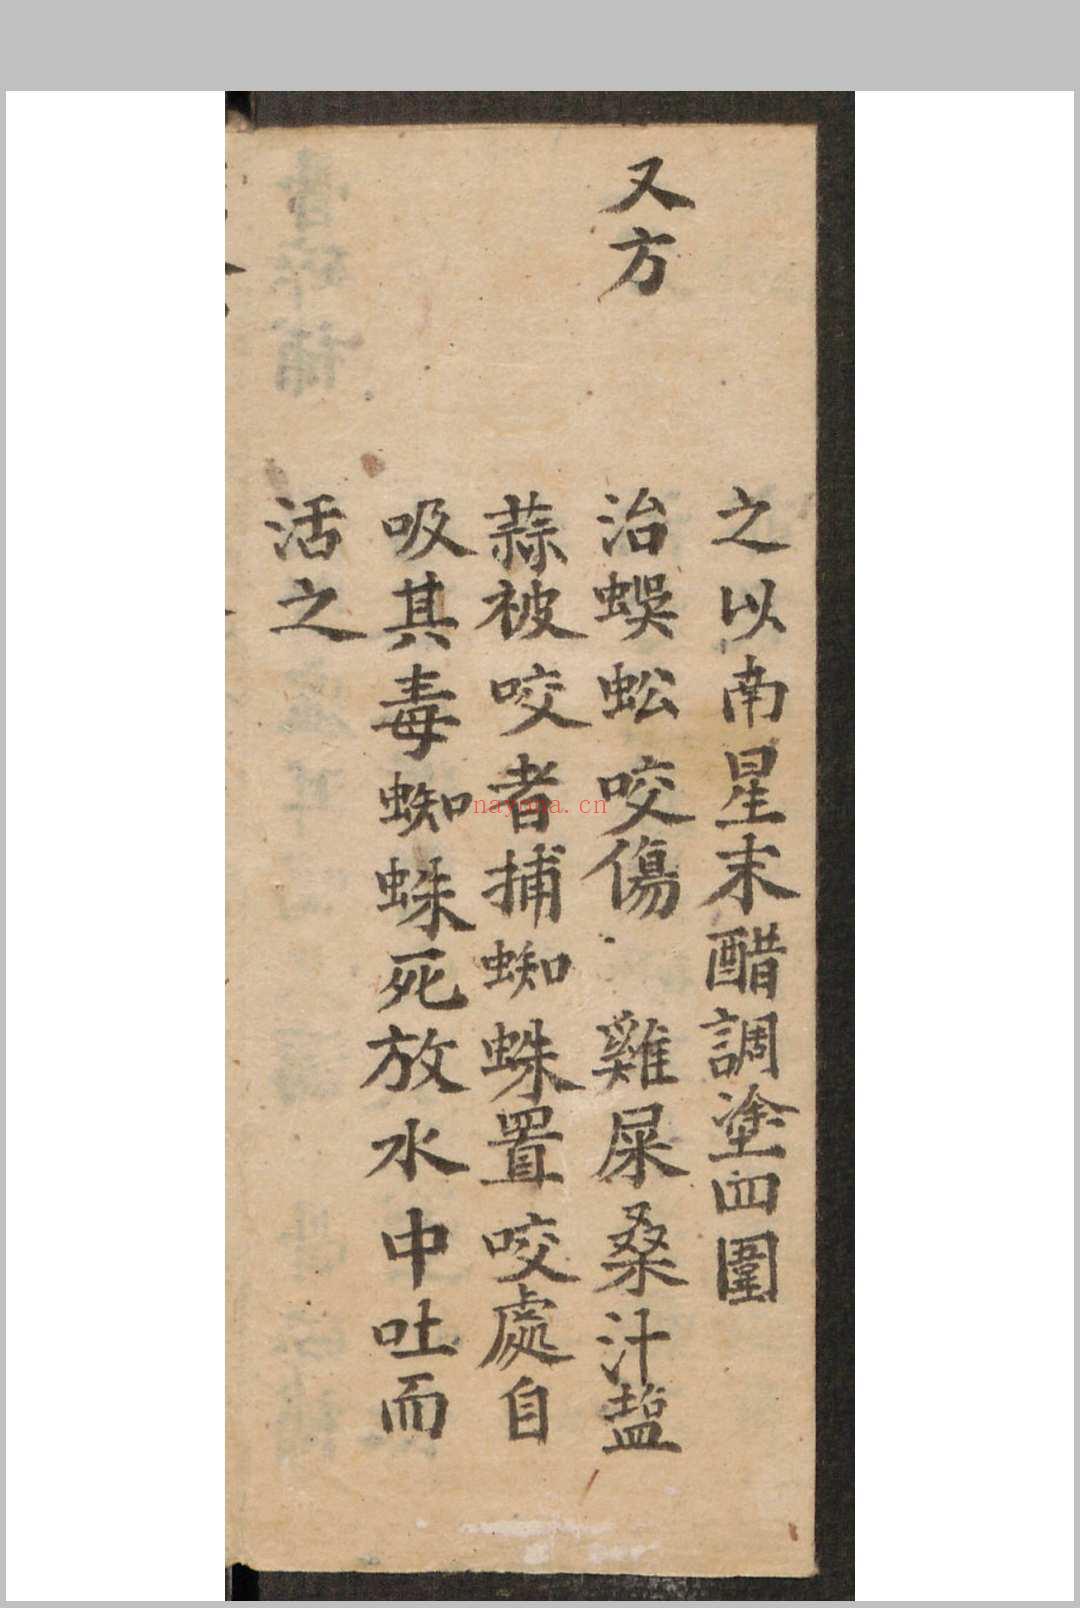 之以南星末醋調塗四圍
又方
治蜈蚣咬傷 雞屎桑汁塩
蒜被咬者捕蜘蛛置咬處自
吸其毒蜘蛛死放水中吐而
活之
nayona.cn